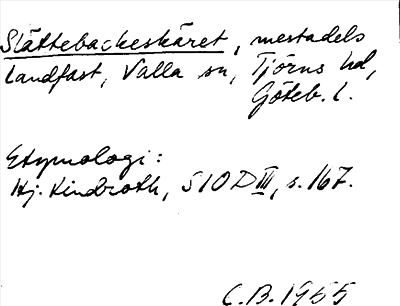 Slättebackeskäret, mestadels
landfast, Valla sn, Tjörns hd,
Göteb. l.
Etymologi:
Hj. Lindroth, SIOD III, s. 167.
C.B. 1955